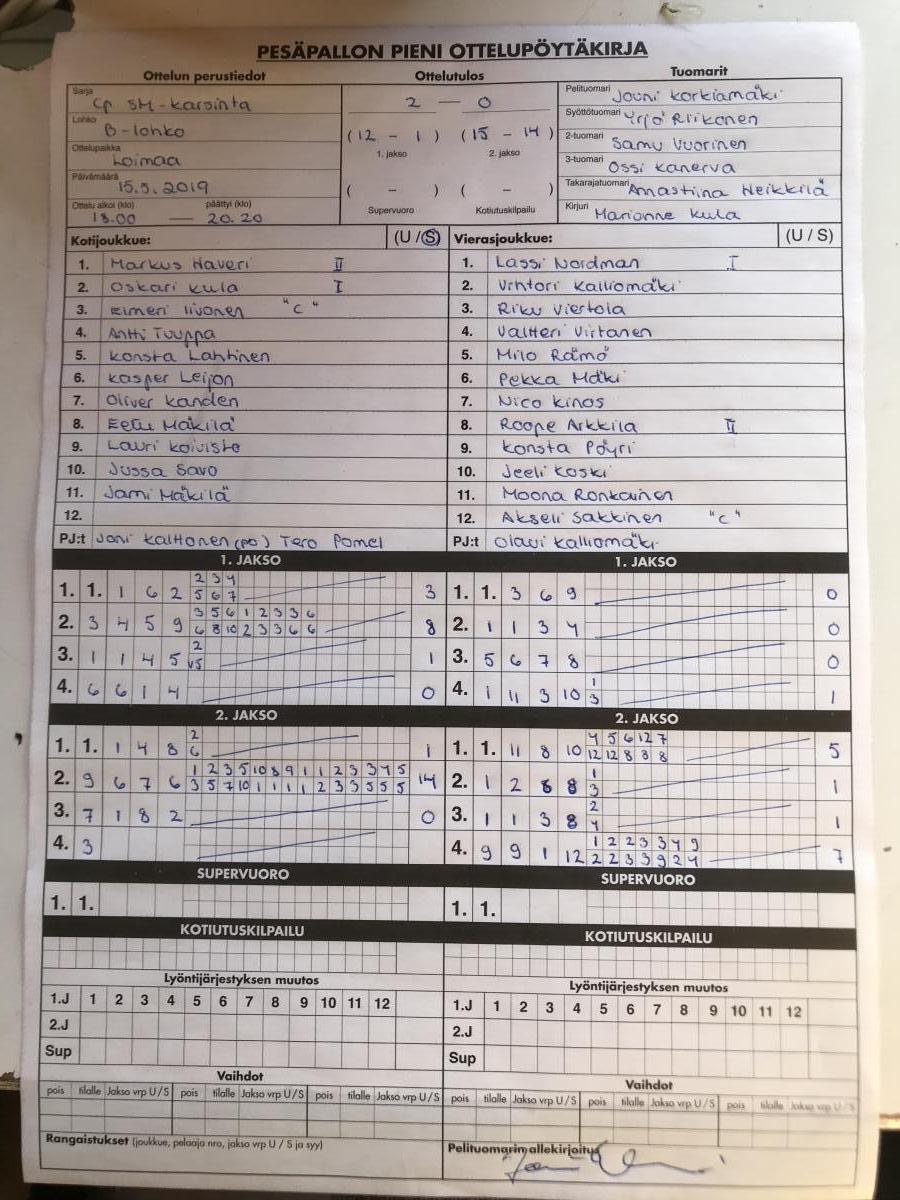 PESÄPALLON PIENI OTTELUPÖYTÄKIRJA
Ottelun perustiedot
Sarja
Cp SM-karsinta
Lohko
B-lohko
Ottelupaikka
Loimaa
Päivämäärä
15.5.2019
Ottelu alkoi (klo) päättyi (klo)
18.00 — 20.20
Ottelutulos
2 — 0
(12 - 1) (15 - 14)
1. jakso 2. jakso
( - ) ( - )
Supervuoro Kotiutuskilpailu
Tuomarit
Pelituomari Jouni Korkiamäki
Syöttötuomari Yrjö Riikonen
2-tuomari Samu Vuorinen
3-tuomari Ossi Kanerva
Takarajatuomari Annastiina Heikkilä
Kirjuri Marianne Kula
Kotijoukkue: (U / S)
1. Markus Haveri II
2. Oskari Kula I
3. Elmeri Iivonen "C"
4. Antti Tuuppa
5. Konsta Lahtinen
6. Kasper Leijon
7. Oliver Kanden
8. Eetu Mäkilä
9. Lauri Koivisto
10. Jussa Savo
11. Jami Mäkilä
12.
PJ:t Joni Kalttonen (po) Tero Pomel
Vierasjoukkue: (U / S)
1. Lassi Nordman I
2. Vihtori Kalliomäki
3. Riku Viertola
4. Valtteri Virtanen
5. Milo Rämö
6. Pekka Mäki
7. Nico Kinos
8. Roope Arkkila II
9. Konsta Pöyri
10. Jeeli Koski
11. Moona Ronkainen
12. Akseli Sakkinen "C"
PJ:t Olavi Kalliomäki
1. JAKSO
1. 1. 1 6 2 2 3 4 3
5 6 7
2. 3 4 5 9 3 5 6 1 2 3 3 6 8
6 8 10 2 3 3 6 6
3. 1 1 4 5 2 1
5
4. 6 6 1 4 0
2. JAKSO
1. 1. 1 4 8 2 1
6
2. 9 6 7 6 1 2 3 5 10 8 9 1 1 2 3 3 4 5 14
3 5 7 10 1 1 1 1 2 3 3 5 5 5
3. 7 1 8 2 0
4. 3
SUPERVUORO
1. 1.
KOTIUTUSKILPAILU
Lyöntijärjestyksen muutos
1.J 1 2 3 4 5 6 7 8 9 10 11 12
2.J
Sup
Vaihdot
pois tilalle Jakso vrp U / S pois tilalle Jakso vrp U / S pois tilalle Jakso vrp U / S
Rangaistukset (joukkue, pelaaja nro, jakso vrp U / S ja syy)
1. JAKSO
1. 1. 3 6 9 0
2. 1 1 3 4 0
3. 5 6 7 8 0
4. 1 11 3 10 1 1
3
2. JAKSO
1. 1. 11 8 10 4 5 6 12 7 5
12 12 8 8 8
2. 1 2 8 8 1 1
3
3. 1 1 3 8 2 1
4
4. 9 9 1 12 1 2 2 3 3 4 9 7
2 2 3 3 9 2 4
SUPERVUORO
1. 1.
KOTIUTUSKILPAILU
Lyöntijärjestyksen muutos
1.J 1 2 3 4 5 6 7 8 9 10 11 12
2.J
Sup
Vaihdot
pois tilalle Jakso vrp U / S pois tilalle Jakso vrp U / S pois tilalle Jakso vrp U / S
Pelituomarin allekirjoitus